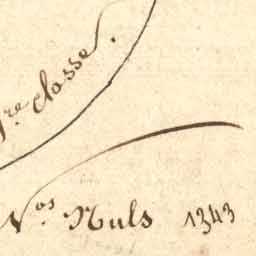 1re classe.
Nos Nuls 1343